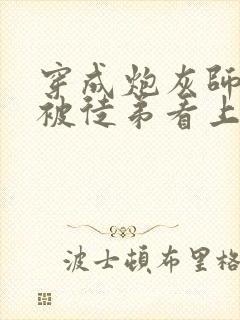 穿成炮灰師
被徒弟看上
波士頓布里格